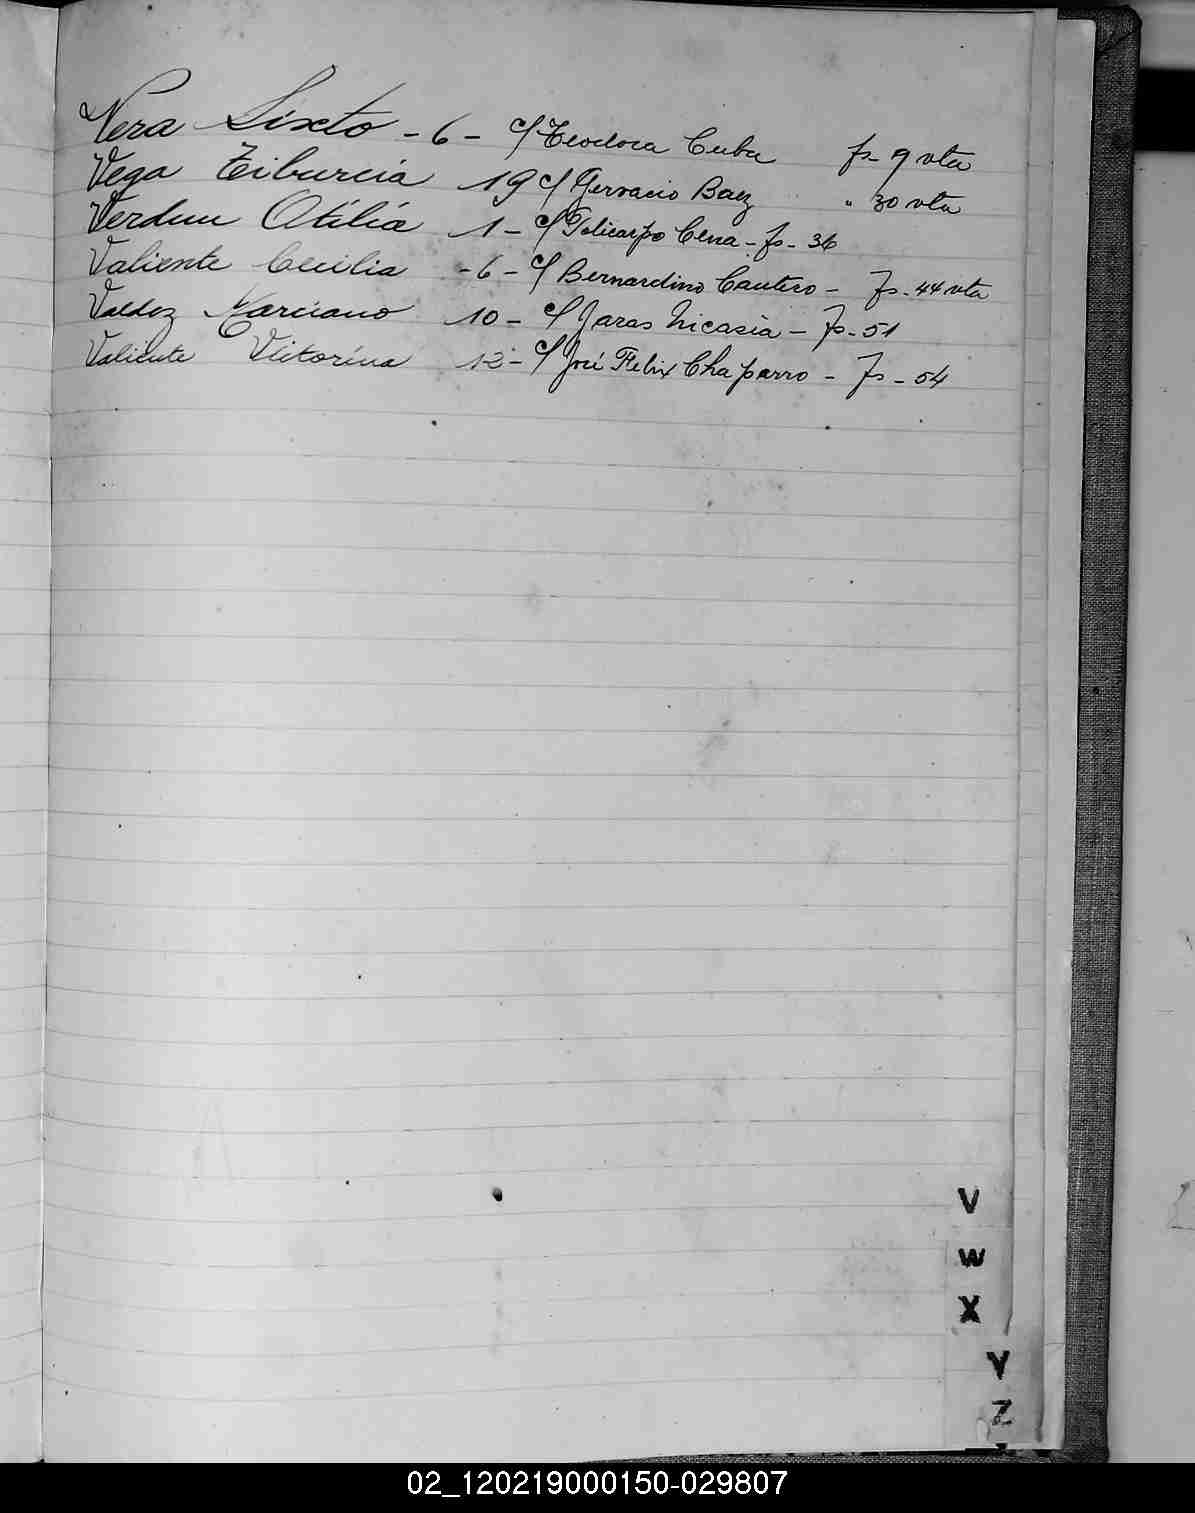 Vera Sixto - 6 - c/ Teodora Cuba fs - 9 vta
Vega Tiburcia 19 c/ Gervacio Baez " 30 vta
Verdun Otilia 1 - c/ Policarpo Cena - fs - 36
Valiente Cecilia - 6 - c/ Bernardino Cantero - Fs - 44 vta
Valdez Marciano 10 - c/ Jaras Nicasia - Fs - 51
Valiente Vitorina 12 - c/ José Felix Chaparro - Fs - 54
V
W
X
Y
Z
02_120219000150-029807